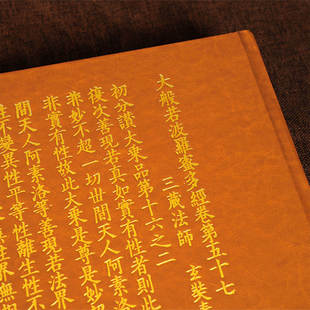 大般若波羅蜜多經卷第五十七
三藏法師 玄奘奉
初分讚大乘品第十六之二
復次善現若真如實有性者則此
非妙不超一切世間天人阿素洛
非實有性故此大乘是尊是妙超
間天人阿素洛等善現若法界
性不變異性平等性離生性不